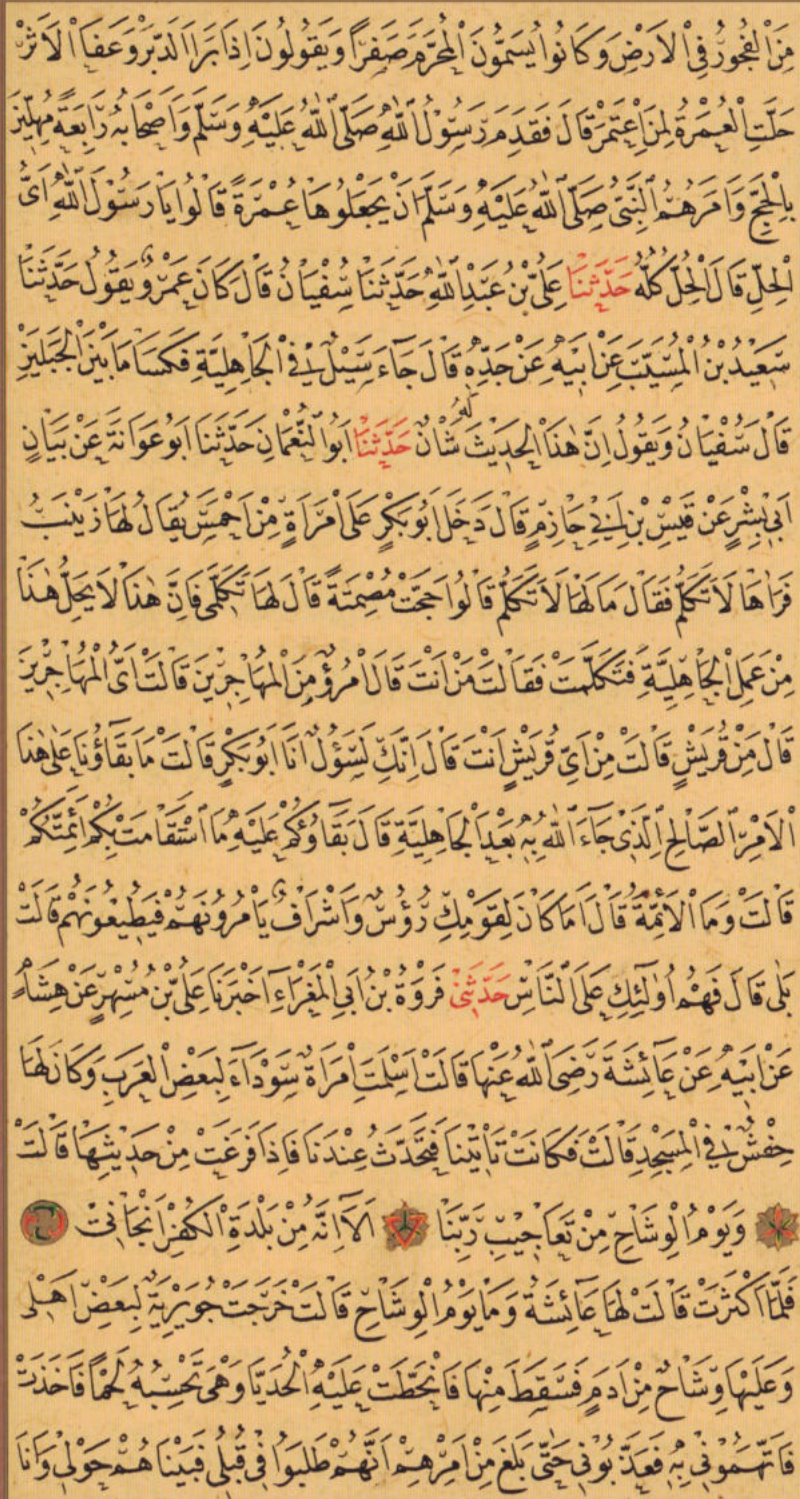 مِنَ الْفُجُورِ فِي الْاَرْضِ وَكَانُوا يُسَمُّونَ الْمُحَرَّمَ صَفَرًا وَيَقُولُونَ اِذَا بَرَا الدَّبَرْ وَعَفَا الْاَثَرْ
حَلَّتِ الْعُمْرَةُ لِمَنِ اعْتَمَرْ قَالَ فَقَدِمَ رَسُولُ اللّٰهِ صَلَّى اللّٰهُ عَلَيْهِ وَسَلَّمَ وَاَصْحَابُهُ رَابِعَةً مُهِلِّينَ
بِالْحَجِّ وَاَمَرَهُمُ النَّبِيُّ صَلَّى اللّٰهُ عَلَيْهِ وَسَلَّمَ اَنْ يَجْعَلُوهَا عُمْرَةً قَالُوا يَا رَسُولَ اللّٰهِ اَيُّ
الْحِلِّ قَالَ الْحِلُّ كُلُّهُ حَدَّثَنَا عَلِيُّ بْنُ عَبْدِ اللّٰهِ حَدَّثَنَا سُفْيَانُ قَالَ كَانَ عَمْرٌو يَقُولُ حَدَّثَنَا
سَعِيدُ بْنُ الْمُسَيَّبِ عَنْ اَبِيهِ عَنْ جَدِّهِ قَالَ جَآءَ سَيْلٌ فِي الْجَاهِلِيَّةِ فَكَسَا مَا بَيْنَ الْجَبَلَيْنِ
قَالَ سُفْيَانُ وَيَقُولُ اِنَّ هٰذَا الْحَدِيثَ لَهُ شَانٌ حَدَّثَنَا اَبُو النُّعْمَانِ حَدَّثَنَا اَبُو عَوَانَةَ عَنْ بَيَانٍ
اَبِي بِشْرٍ عَنْ قَيْسِ بْنِ اَبِي حَازِمٍ قَالَ دَخَلَ اَبُو بَكْرٍ عَلَى امْرَاَةٍ مِنْ اَحْمَسَ يُقَالُ لَهَا زَيْنَبُ
فَرَاٰهَا لَا تَكَلَّمُ فَقَالَ مَا لَهَا لَا تَكَلَّمُ قَالُوا حَجَّتْ مُصْمِتَةً قَالَ لَهَا تَكَلَّمِي فَاِنَّ هٰذَا لَا يَحِلُّ هٰذَا
مِنْ عَمَلِ الْجَاهِلِيَّةِ فَتَكَلَّمَتْ فَقَالَتْ مَنْ اَنْتَ قَالَ امْرُؤٌ مِنَ الْمُهَاجِرِينَ قَالَتْ اَيُّ الْمُهَاجِرِينَ
قَالَ مِنْ قُرَيْشٍ قَالَتْ مِنْ اَيِّ قُرَيْشٍ اَنْتَ قَالَ اِنَّكِ لَسَؤُلٌ اَنَا اَبُو بَكْرٍ قَالَتْ مَا بَقَآؤُنَا عَلٰى هٰذَا
الْاَمْرِ الصَّالِحِ الَّذِي جَآءَ اللّٰهُ بِهِ بَعْدَ الْجَاهِلِيَّةِ قَالَ بَقَآؤُكُمْ عَلَيْهِ مَا اسْتَقَامَتْ بِكُمْ اَئِمَّتُكُمْ
قَالَتْ وَمَا الْاَئِمَّةُ قَالَ اَمَا كَانَ لِقَوْمِكِ رُؤُسٌ وَاَشْرَافٌ يَاْمُرُونَهُمْ فَيُطِيعُونَهُمْ قَالَتْ
بَلٰى قَالَ فَهُمْ اُولٰٓئِكِ عَلَى النَّاسِ حَدَّثَنِي فَرْوَةُ بْنُ اَبِي الْمَغْرَآءِ اَخْبَرَنَا عَلِيُّ بْنُ مُسْهِرٍ عَنْ هِشَامٍ
عَنْ اَبِيهِ عَنْ عَآئِشَةَ رَضِيَ اللّٰهُ عَنْهَا قَالَتْ اَسْلَمَتِ امْرَاَةٌ سَوْدَآءُ لِبَعْضِ الْعَرَبِ وَكَانَ لَهَا
حِفْشٌ فِي الْمَسْجِدِ قَالَتْ فَكَانَتْ تَاْتِينَا فَتَحَدَّثُ عِنْدَنَا فَاِذَا فَرَغَتْ مِنْ حَدِيثِهَا قَالَتْ
وَيَوْمُ الْوِشَاحِ مِنْ تَعَاجِيبِ رَبِّنَا اَلَآ اِنَّهُ مِنْ بَلْدَةِ الْكُفْرِ اَنْجَانِي
فَلَمَّا اَكْثَرَتْ قَالَتْ لَهَا عَآئِشَةُ وَمَا يَوْمُ الْوِشَاحِ قَالَتْ خَرَجَتْ جُوَيْرِيَةٌ لِبَعْضِ اَهْلِي
وَعَلَيْهَا وِشَاحٌ مِنْ اَدَمٍ فَسَقَطَ مِنْهَا فَانْحَطَّتْ عَلَيْهِ الْحُدَيَّا وَهْيَ تَحْسِبُهُ لَحْمًا فَاَخَذَتْ
فَاتَّهَمُونِي بِهِ فَعَذَّبُونِي حَتّٰى بَلَغَ مِنْ اَمْرِهِمْ اَنَّهُمْ طَلَبُوا فِي قُبُلِي فَبَيْنَا هُمْ حَوْلِي وَاَنَا